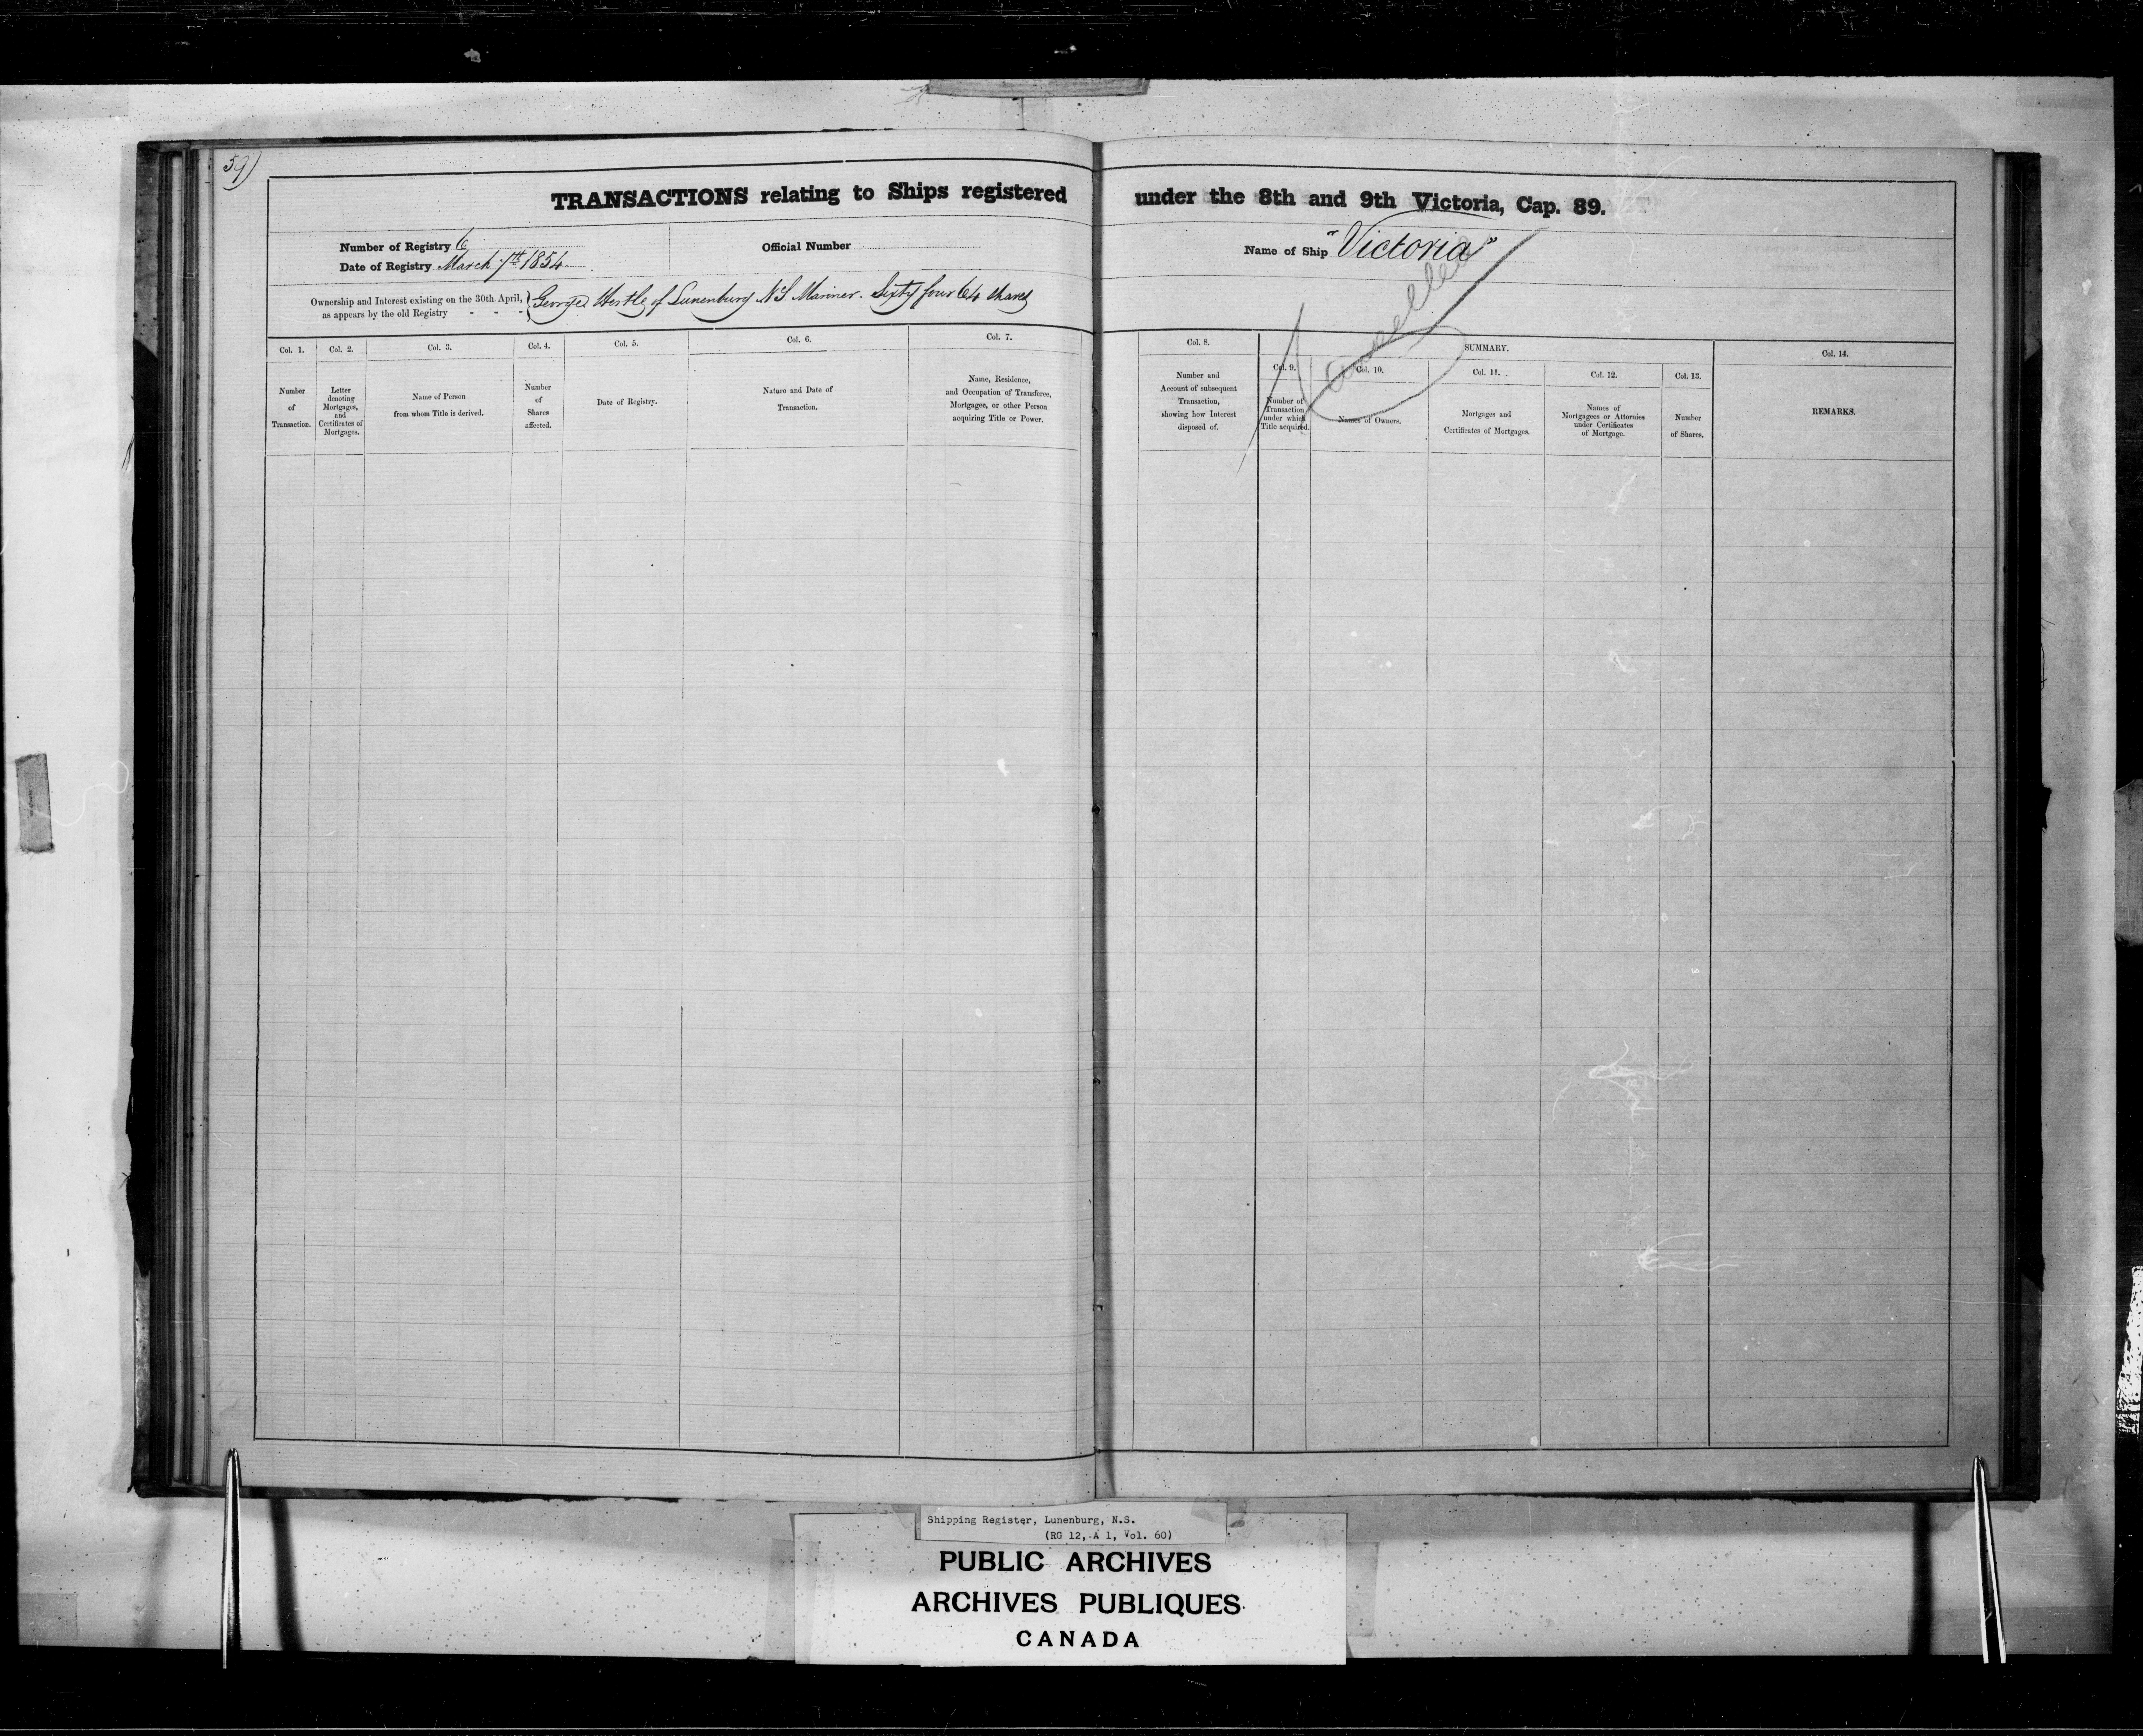 59)
TRANSACTIONS relating to Ships registered under the 8th and 9th Victoria, Cap. 89.
Number of Registry 6
Date of Registry March 7th 1854
Official Number
Name of Ship "Victoria"
Cancelled
Ownership and Interest existing on the 30th April, George of Lunenburg N S. Mariner. Sixty four 64 Shares
as appears by the old Registry - - -
Col. 1.
Number
of
Transaction.
Col. 2.
Letter
denoting
Mortgages,
and
Certificates of
Mortgages.
Col. 3.
Name of Person
from whom Title is derived.
Col. 4.
Number
of
Shares
affected.
Col. 5.
Date of Registry.
Col. 6.
Nature and Date of
Transaction.
Col. 7.
Name, Residence,
and Occupation of Transferee,
Mortgagee, or other Person
acquiring Title or Power.
Col. 8.
Number and
Account of subsequent
Transaction,
showing how Interest
disposed of.
SUMMARY.
Col. 9.
Number of
Transaction
under which
Title acquired.
Col. 10.
Names of Owners.
Col. 11.
Mortgages and
Certificates of Mortgages.
Col. 12.
Names of
Mortgagees or Attornies
under Certificates
of Mortgage.
Col. 13.
Number
of Shares.
Col. 14.
REMARKS.
Shipping Register, Lunenburg, N.S.
(RG 12, A 1, Vol. 60)
PUBLIC ARCHIVES
ARCHIVES PUBLIQUES
CANADA